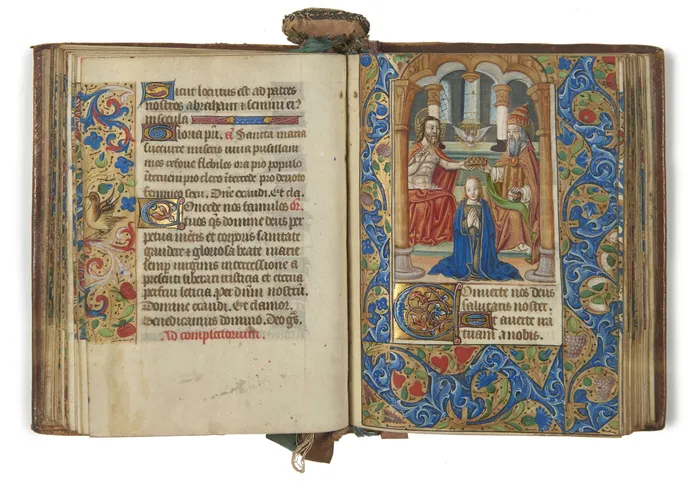 Sicut locutus est ad patres
nostros abraham & semini ei9
in secula
Gloria pri. a. Sancta maria
succurre miseris iuva pusillani
mes refove flebiles ora pro populo
interveni pro clero intercede pro devoto
femineo sexu. Dne exaudi. Et cla.
Concede nos famulos or.
tuos qs domine deus per
petua mētis et corporis sanitate
gaudere & gloriosa beate marie
semp virginis intercessione a
presenti liberari tristicia et eterna
perfrui leticia. Per dnm nostrū.
Domine exaudi. Et clamor.
Benedicamus domino. Deo gs.
Ad completorium.
Converte nos deus
salutaris noster.
Et averte irā
tuam a nobis.